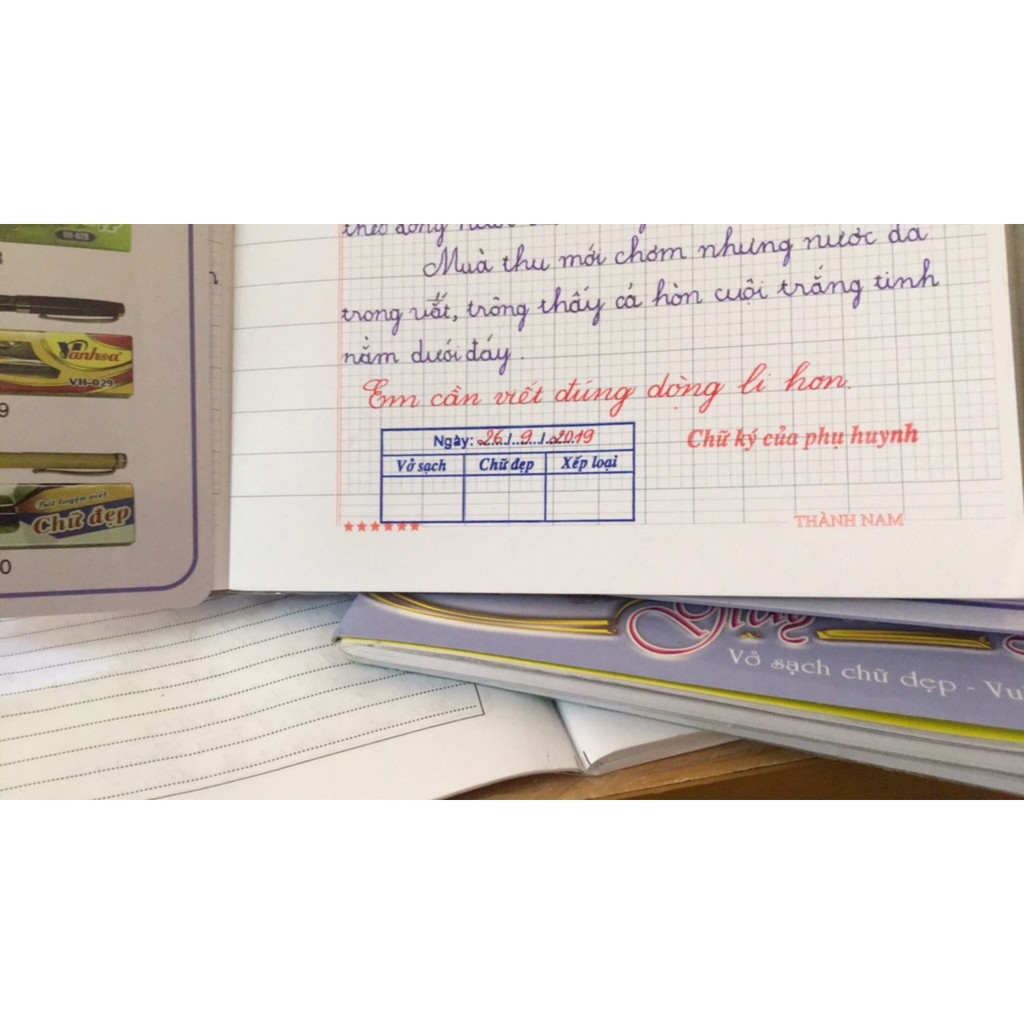 theo dòng
Mùa thu mới chớm nhưng nước đã
trong vắt, trông thấy cả hòn cuội trắng tinh
nằm dưới đáy.
Em cần viết đúng dòng li hơn.
Ngày: 26/9/2019
Chữ ký của phụ huynh
Vở sạch Chữ đẹp Xếp loại
★★★★★★
THÀNH NAM
VH-029
Vanhoa
VH-029
9
Bút luyện viết
Chữ đẹp
0
Giấy
Vở sạch chữ đẹp - Vu